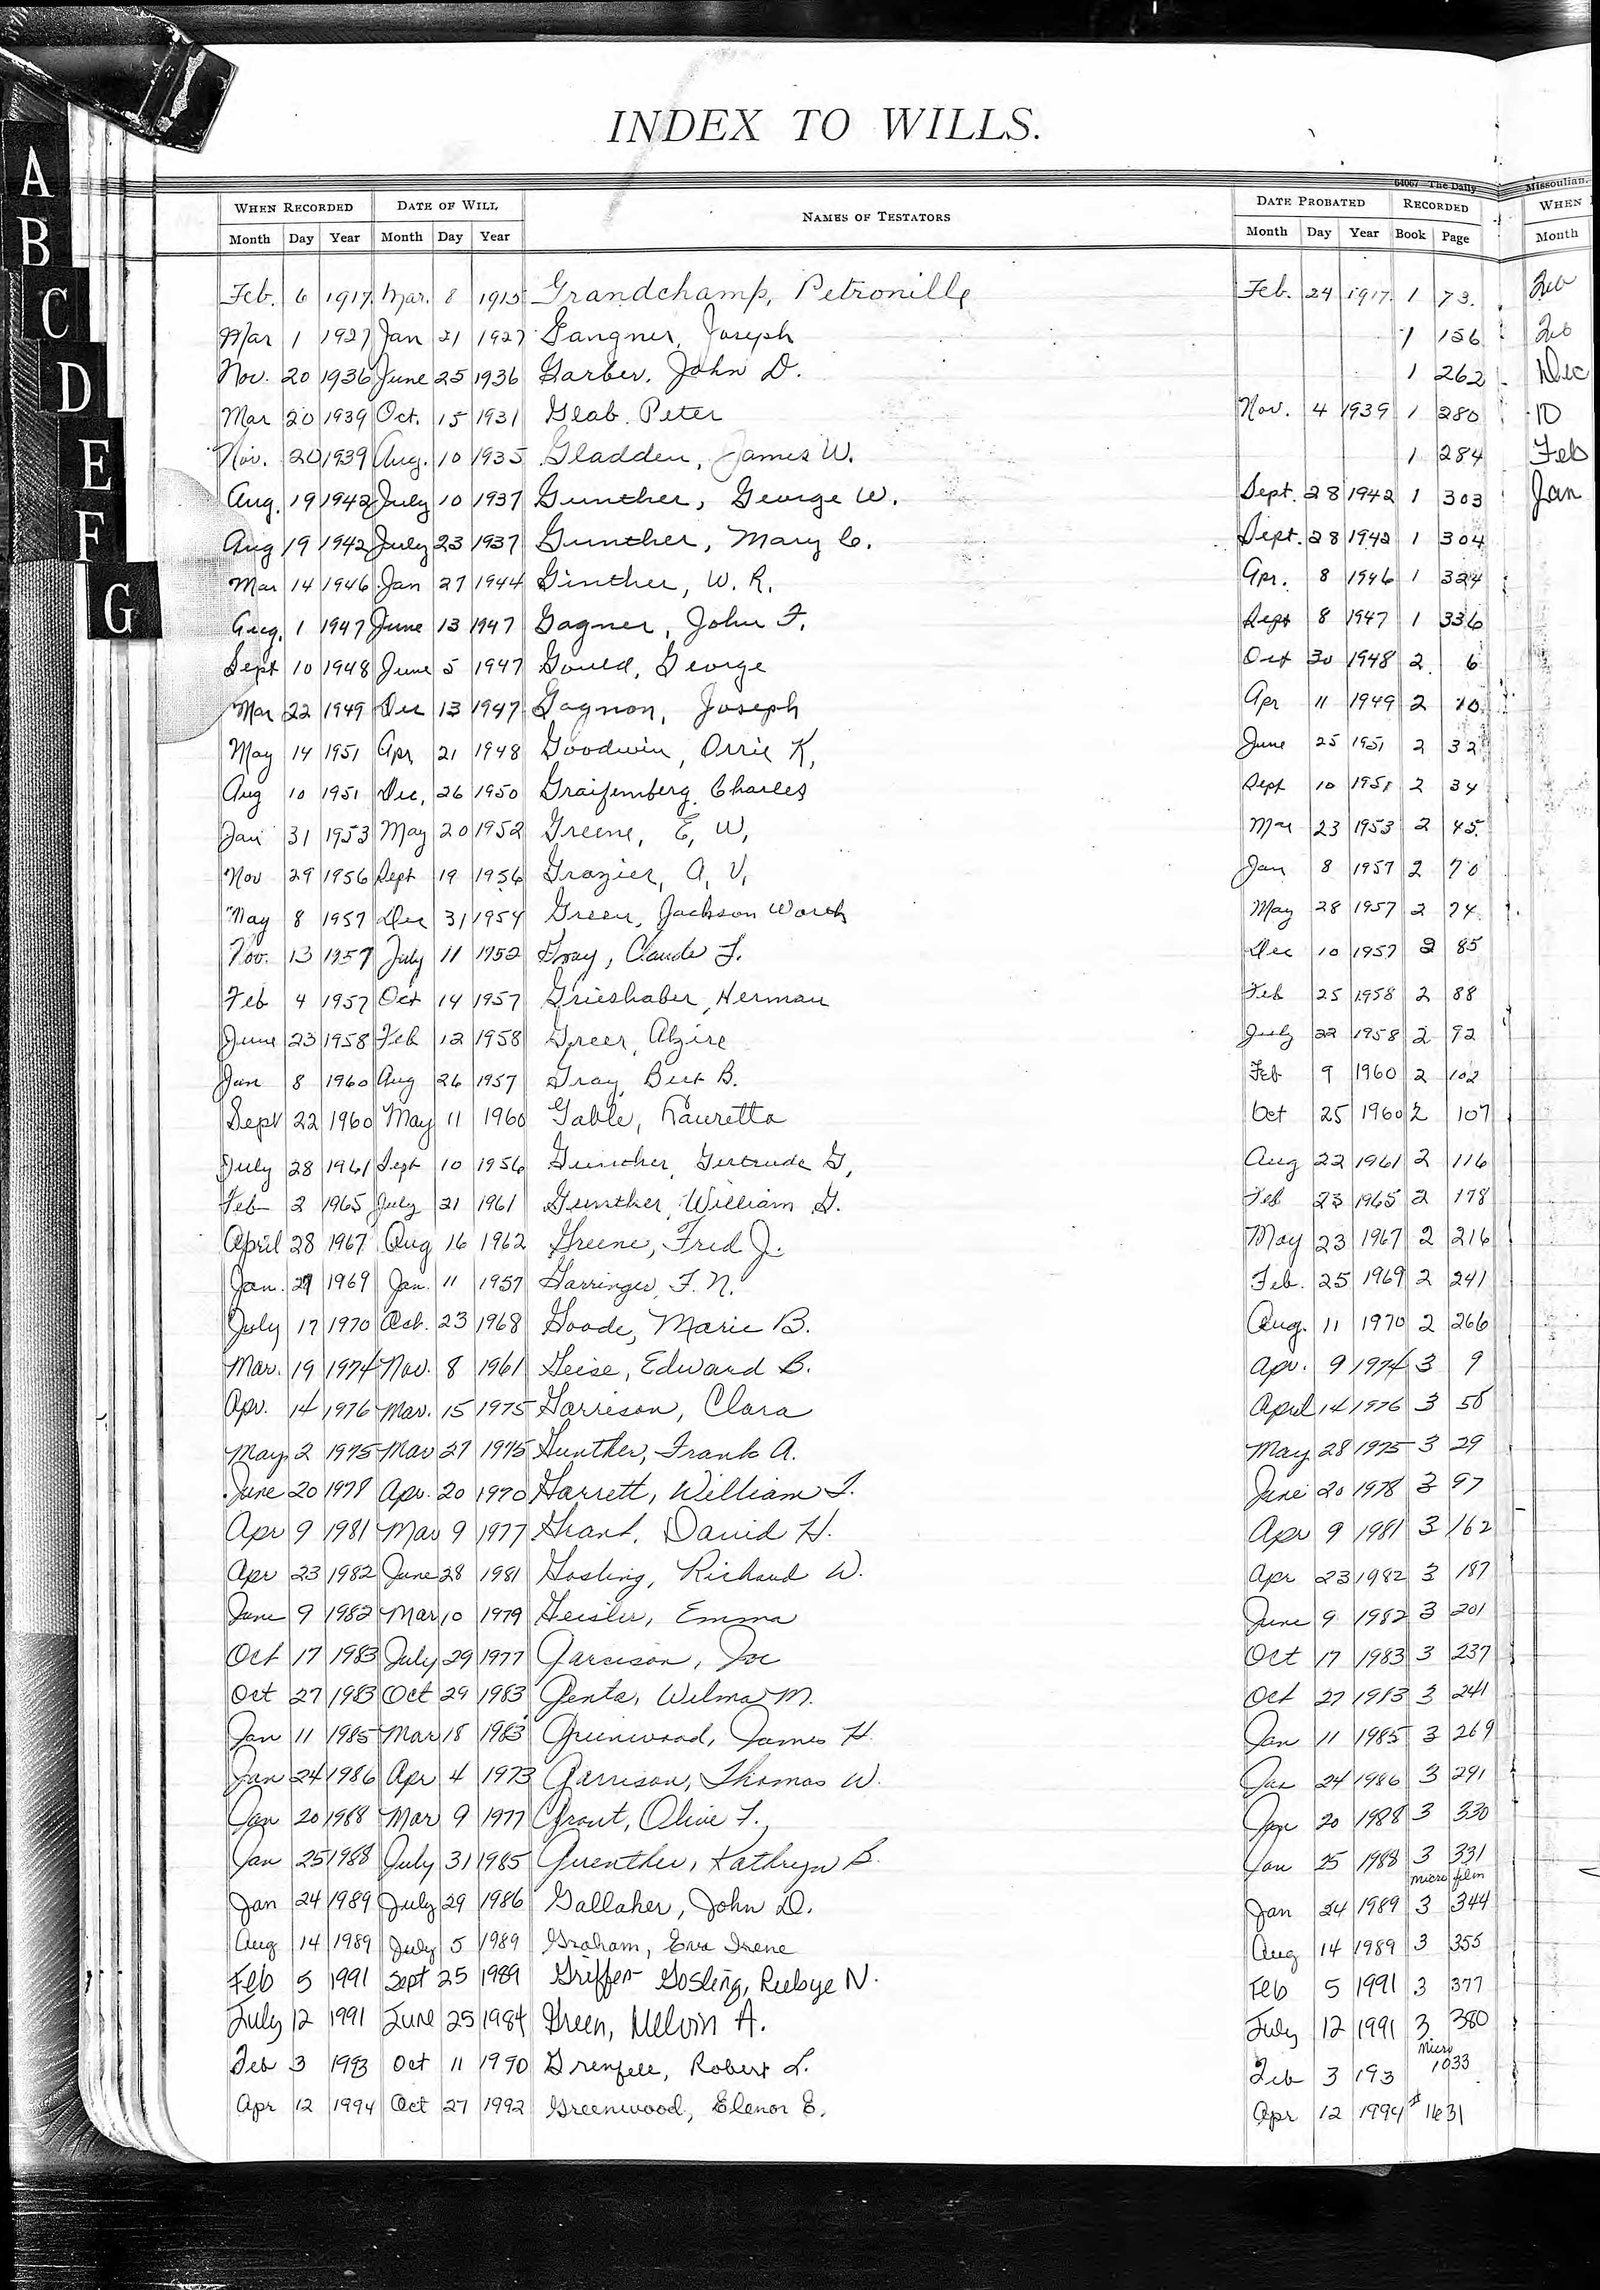 INDEX TO WILLS.
64067 The Daily Missoulian.
WHEN RECORDED DATE OF WILL NAMES OF TESTATORS DATE PROBATED RECORDED WHEN
Month Day Year Month Day Year Month Day Year Book Page Month
Feb. 6 1917 Mar. 8 1915 Grandchamp, Petronille Feb. 24 1917 1 73. Feb
Mar 1 1927 Jan 21 1927 Gangner, Joseph 1 156 Feb
Nov. 20 1936 June 25 1936 Garber, John D. 1 262 Dec
Mar 20 1939 Oct. 15 1931 Glab Peter Nov. 4 1939 1 280 10
Nov. 20 1939 Aug. 10 1935 Gladden, James W. 1 284 Feb
Aug. 19 1942 July 10 1937 Gunther, George W. Sept. 28 1942 1 303 Jan
Aug 19 1942 July 23 1937 Gunther, Mary C. Sept. 28 1942 1 304
Mar 14 1946 Jan 27 1944 Ginther, W. R. Apr. 8 1946 1 324
Aug. 1 1947 June 13 1947 Gagner, John F. Sept 8 1947 1 336
Sept 10 1948 June 5 1947 Gould, George Oct 30 1948 2 6
Mar 22 1949 Dec 13 1947 Gagnon, Joseph Apr 11 1949 2 10
May 14 1951 Apr 21 1948 Goodwin, Orrie K, June 25 1951 2 32
Aug 10 1951 Dec, 26 1950 Graifemberg, Charles Sept 10 1951 2 34
Jan 31 1953 May 20 1952 Greene, E, W, Mar 23 1953 2 45
Nov 29 1956 Sept 19 1956 Grazier, A, V, Jan 8 1957 2 70
May 8 1957 Dec 31 1954 Green, Jackson Worth May 28 1957 2 74
Nov. 13 1957 July 11 1952 Gray, Claude F. Dec 10 1957 2 85
Feb 4 1957 Oct 14 1957 Grieshaber, Herman Feb 25 1958 2 88
June 23 1958 Feb 12 1958 Greer, Alzire July 22 1958 2 92
Jan 8 1960 Aug 26 1957 Gray, Bert B. Feb 9 1960 2 102
Sept 22 1960 May 11 1960 Gable, Lauretta Oct 25 1960 2 107
July 28 1961 Sept 10 1956 Gunther, Gertrude G, Aug 22 1961 2 116
Feb 2 1965 July 21 1961 Gunther, William G. Feb 23 1965 2 178
April 28 1967 Aug 16 1962 Greene, Fred J. May 23 1967 2 216
Jan. 1969 Jan. 11 1957 Garringer, F. N. Feb. 25 1969 2 241
July 17 1970 Oct. 23 1968 Goode, Marie B. Aug. 11 1970 2 266
Mar. 19 1974 Nov. 8 1961 Geise, Edward B. Apr. 9 1974 3 9
Apr. 14 1976 Mar. 15 1975 Garrison, Clara April 14 1976 3
May 2 1975 Mar 27 1975 Gunther, Frank A. May 28 1975 3 29
June 20 1978 Apr. 20 1970 Garrett, William F. June 20 1978 3 97
Apr 9 1981 Mar 9 1977 Grant, David H. Apr 9 1981 3 162
Apr 23 1982 June 28 1981 Gosling, Richard W. Apr 23 1982 3 187
June 9 1982 Mar 10 1979 Geisler, Emma June 9 1982 3 201
Oct 17 1983 July 29 1977 Garrison, Joe Oct 17 1983 3 237
Oct 27 1983 Oct 29 1983 Genta, Wilma M. Oct 27 1983 3 241
Jan 11 1985 Mar 18 1983 Greenwood, James H. Jan 11 1985 3 269
Jan 24 1986 Apr 4 1973 Garrison, Thomas W. Jan 24 1986 3 291
Jan 20 1988 Mar 9 1977 Grout, Olive F., Jan 20 1988 3 330
Jan 25 1988 July 31 1985 Guenther, Kathryn B. Jan 25 1988 3 331
micro film
Jan 24 1989 July 29 1986 Gallaher, John D. Jan 24 1989 3 344
Aug 14 1989 July 5 1989 Graham, Eva Irene Aug 14 1989 3 355
Feb 5 1991 Sept 25 1989 Griffen Gosling, Rubye N. Feb 5 1991 3 377
July 12 1991 June 25 1984 Green, Melvin A. July 12 1991 3 380
Micro
Feb 3 1993 Oct 11 1990 Grenfell, Robert L. Feb 3 193 1033
Apr 12 1994 Oct 27 1992 Greenwood, Elenor E. Apr 12 1994 # 1631
A
B
C
D
E
F
G